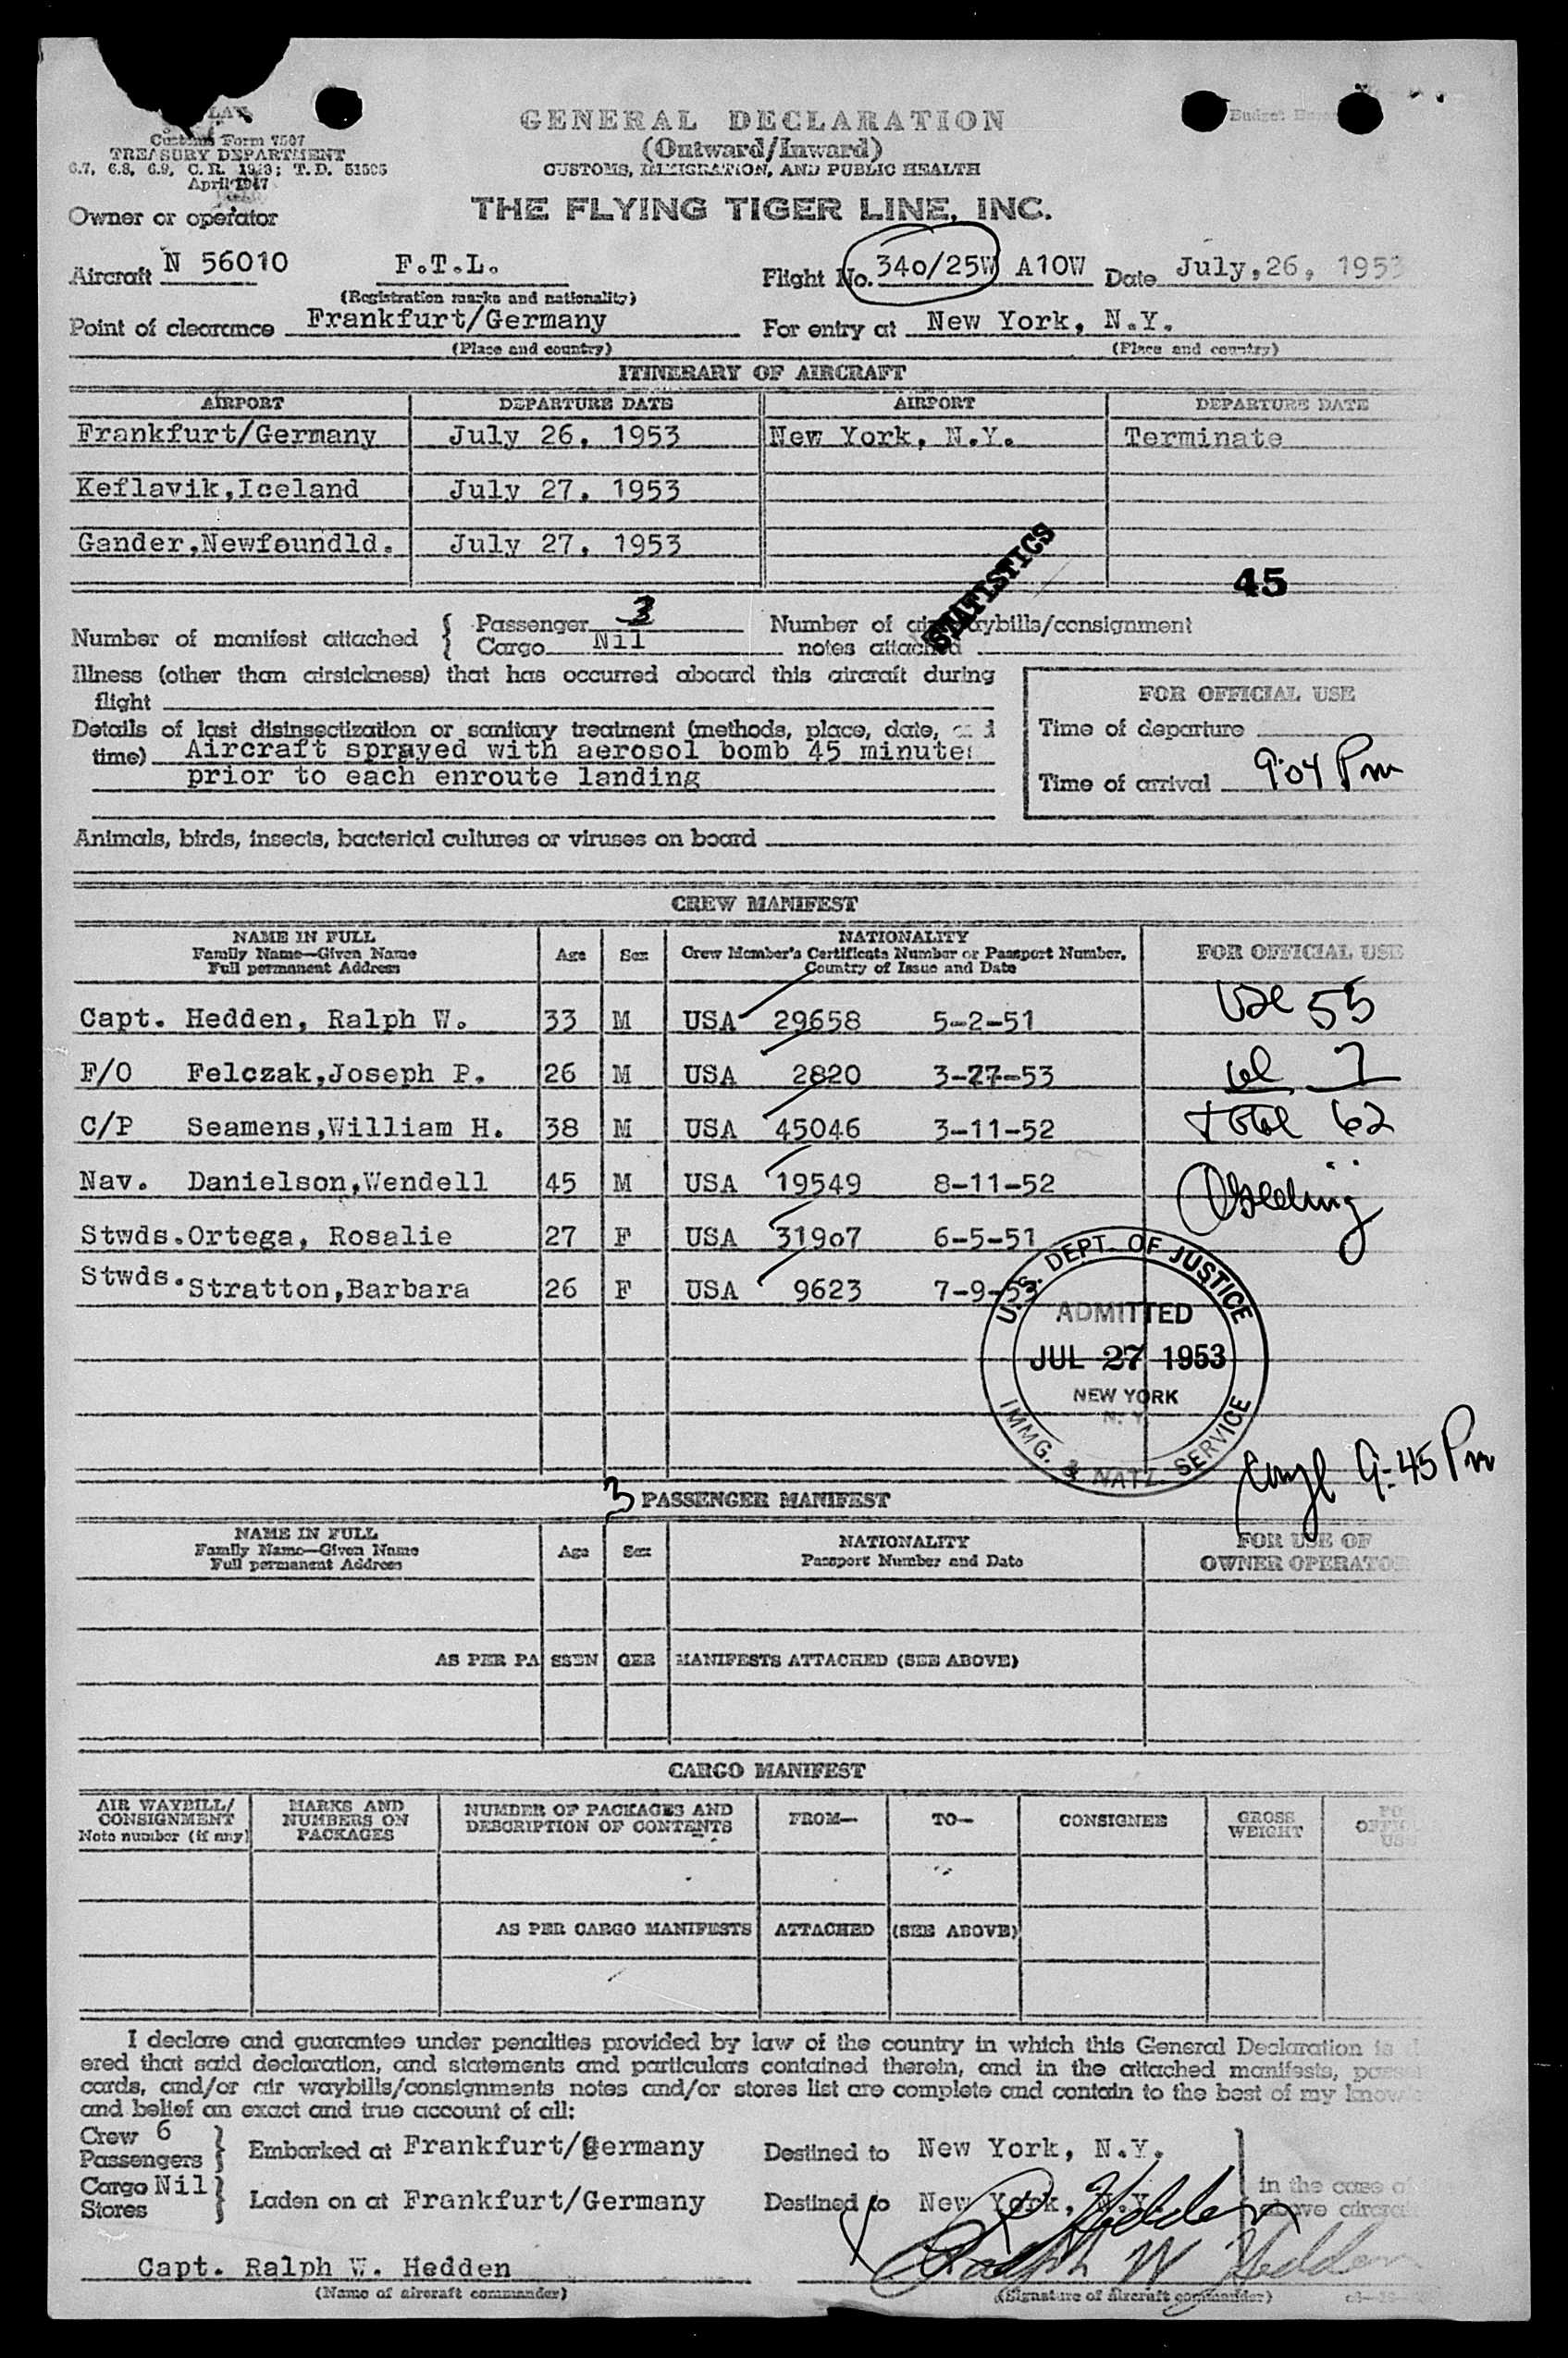 Customs Form 7507
TREASURY DEPARTMENT
6.7, 6.8, 6.9, C.R. 1943; T.D. 51505
April 1947
GENERAL DECLARATION
(Outward/Inward)
CUSTOMS, IMMIGRATION, AND PUBLIC HEALTH
Budget
Owner or operator
THE FLYING TIGER LINE, INC.
Aircraft N 56010 F.T.L. Flight No. 34o/25W A10W Date July,26, 1953
(Registration marks and nationality)
Point of clearance Frankfurt/Germany For entry at New York, N.Y.
(Place and country) (Place and country)
ITINERARY OF AIRCRAFT
AIRPORT DEPARTURE DATE AIRPORT DEPARTURE DATE
Frankfurt/Germany July 26, 1953 New York, N.Y. Terminate
Keflavik,Iceland July 27, 1953
Gander,Newfoundld. July 27, 1953
STATISTICS
45
Number of manifest attached { Passenger 3 Number of air waybills/consignment
Cargo Nil notes attached
Illness (other than airsickness) that has occurred aboard this aircraft during
flight
FOR OFFICIAL USE
Details of last disinsectization or sanitary treatment (methods, place, date, and
Time of departure
time) Aircraft sprayed with aerosol bomb 45 minutes
prior to each enroute landing
Time of arrival 9:04 Pm
Animals, birds, insects, bacterial cultures or viruses on board
CREW MANIFEST
NAME IN FULL
Family Name—Given Name
Full permanent Address
Age Sex
NATIONALITY
Crew Member's Certificate Number or Passport Number,
Country of Issue and Date
FOR OFFICIAL USE
Capt. Hedden, Ralph W. 33 M USA 29658 5-2-51
55
F/O Felczak,Joseph P. 26 M USA 2820 3-27-53
7
C/P Seamens,William H. 38 M USA 45046 3-11-52
Total 62
Nav. Danielson,Wendell 45 M USA 19549 8-11-52
Stwds.Ortega, Rosalie 27 F USA 319o7 6-5-51
Stwds.Stratton,Barbara 26 F USA 9623 7-9-53
U.S. DEPT. OF JUSTICE
ADMITTED
JUL 27 1953
NEW YORK
N. Y.
IMMG. & NATZ. SERVICE
9-45 Pm
3 PASSENGER MANIFEST
NAME IN FULL
Family Name—Given Name
Full permanent Address
Age Sex
NATIONALITY
Passport Number and Date
FOR USE OF
OWNER OPERATOR
AS PER PASSENGER MANIFESTS ATTACHED (SEE ABOVE)
CARGO MANIFEST
AIR WAYBILL/
CONSIGNMENT
Note number (if any)
MARKS AND
NUMBERS ON
PACKAGES
NUMBER OF PACKAGES AND
DESCRIPTION OF CONTENTS
FROM— TO— CONSIGNEE
GROSS
WEIGHT
AS PER CARGO MANIFESTS ATTACHED (SEE ABOVE)
I declare and guarantee under penalties provided by law of the country in which this General Declaration is
ered that said declaration, and statements and particulars contained therein, and in the attached manifests,
cards, and/or air waybills/consignments notes and/or stores list are complete and contain to the best of my
and belief an exact and true account of all:
Crew 6
Passengers } Embarked at Frankfurt/Germany Destined to New York, N.Y.
Cargo Nil
Stores } Laden on at Frankfurt/Germany Destined to New York, N.Y.
in the case of
above aircraft
R Hedden
Capt. Ralph W. Hedden Ralph W Hedden
(Name of aircraft commander) (Signature of aircraft commander)